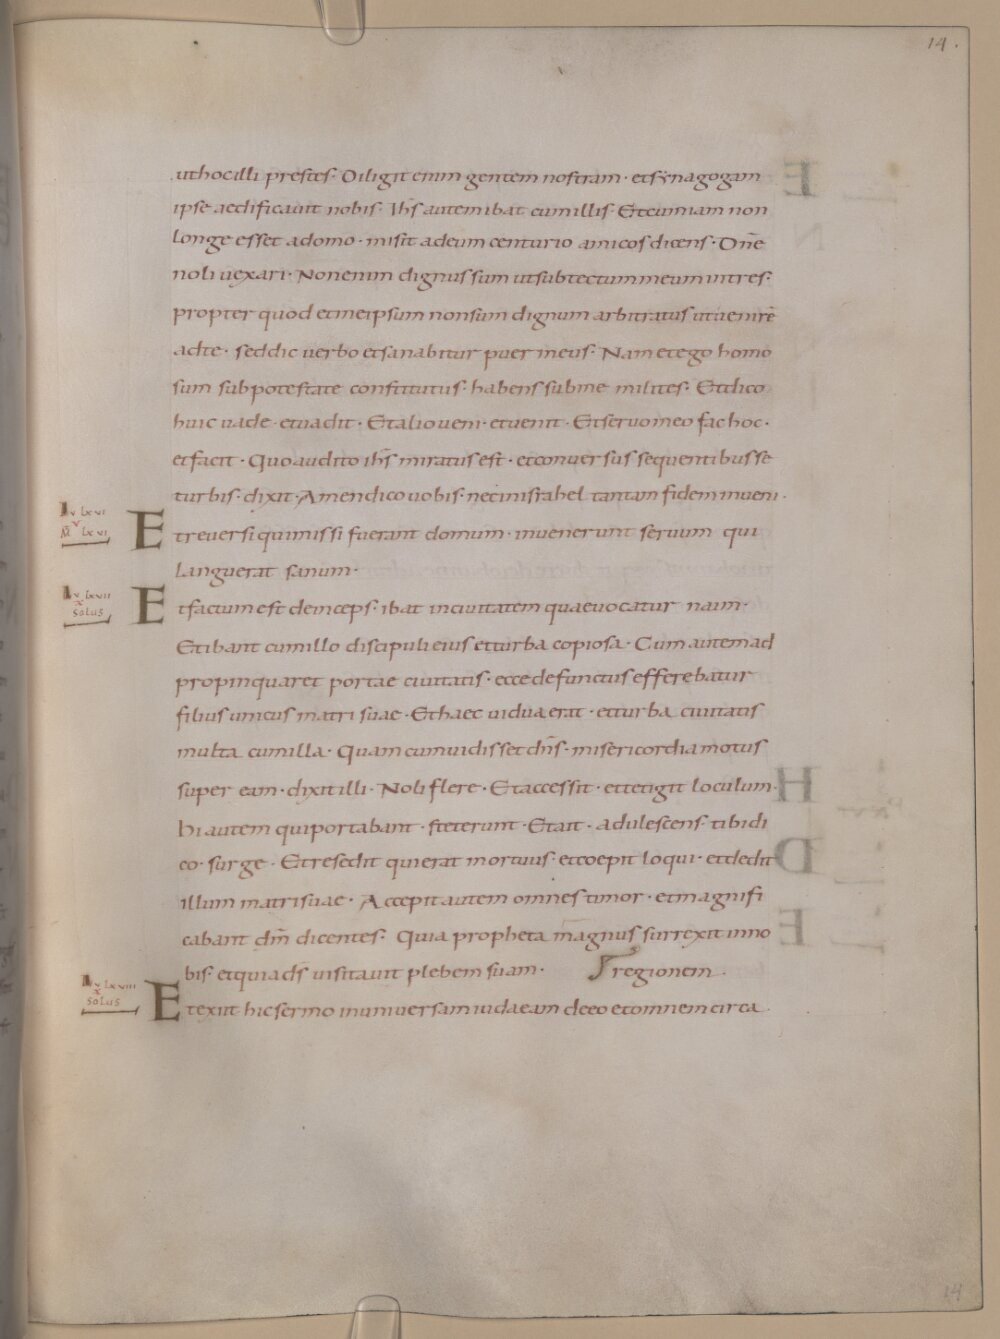 14.
ut hoc illi prestes· Diligit enim gentem nostram· et synagogam
ipse aedificavit nobis· Ihs̄ autem ibat cum illis· Et cum iam non
longe esset a domo· misit ad eum centurio amicos dicens· Dn̄e
noli vexari· Non enim dignus sum ut sub tectum meum intres·
propter quod et me ipsum non sum dignum arbitratus ut venirē
ad te· sed dic verbo et sanabitur puer meus· Nam et ego homo
sum sub potestate constitutus· habens sub me milites· Et dico
huic vade· et vadit· Et alio veni· et venit· Et servo meo fac hoc·
et facit· Quo audito ihs̄ miratus est· et conversus sequentibus se
turbis· dixit· Amen dico vobis· nec in israhel tantam fidem inveni·
Lv lxvi
M̄ v lxvi
Et reversi qui missi fuerant domum· invenerunt servum qui
languerat sanum·
Lv lxvii
x
solus
Et factum est deinceps· ibat in civitatem quae vocatur naim·
Et ibant cum illo discipuli eius et turba copiosa· Cum autem ad
propinquaret portae civitatis· ecce defunctus efferebatur
filius unicus matri suae· Et haec vidua erat· et turba civitatis
multa cum illa· Quam cum vidisset dn̄s· misericordia motus
super eam· dixit illi· Noli flere· Et accessit· et tetigit loculum·
hi autem qui portabant· steterunt· Et ait· adulescens· tibi di
co· surge· Et resedit qui erat mortuus· et coepit loqui· et dedit
illum matri suae· Accepit autem omnes timor· et magnifi
cabant dm̄ dicentes· Quia propheta magnus surrexit in no
bis· et quia ds̄ visitavit plebem suam· regionem·
Lv lxviii
x
solus
Et exiit hic sermo in universam iudaeam de eo et omnem circa
14